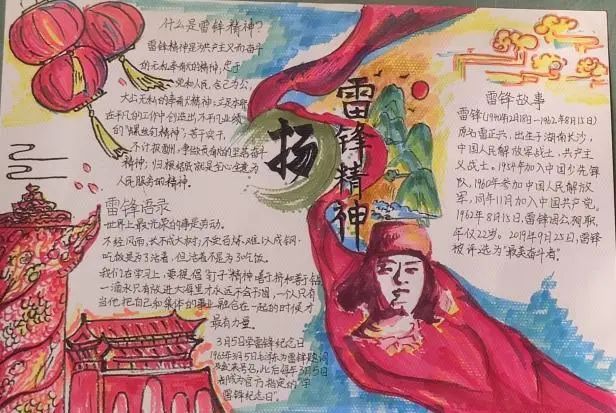 什么是雷锋精神?
雷锋精神是为共产主义而奋斗
的无私奉献的精神,忠于
党和人民、舍己为公、
大公无私的奉献精神;立足本职、
在平凡的工作中创造出不平凡业绩
的"螺丝钉精神";苦干实干、
不计报酬、争做贡献的艰苦奋斗
精神;归根结底就是全心全意为
人民服务的精神。
雷锋语录
世界上最光荣的事是劳动。
不经风雨,长不成大树;不受百炼,难以成钢。
吃饭是为了活着,但活着不是为了吃饭。
我们在学习上,要提倡"钉子"精神善于挤和善于钻
一滴水只有放进大海里才永远不会干涸,一个人只有
当他把自己和集体的事业融合在一起的时候才
最有力量。
3月5日学雷锋纪念日
1963年3月5日毛泽东为雷锋题词
此后每年3月5日
都成为官方指定的"学
雷锋纪念日"。
扬
雷锋精神
雷锋故事
雷锋(1940年12月18日-1962年8月15日)
原名雷正兴,出生于湖南长沙,
中国人民解放军战士,共产主
义战士。1954年加入中国少先锋
队,1960年参加中国人民解放
军,同年11月加入中国共产党。
1962年8月15日,雷锋因公殉职,
年仅22岁。2019年9月25日,雷锋
被评选为"最美奋斗者"